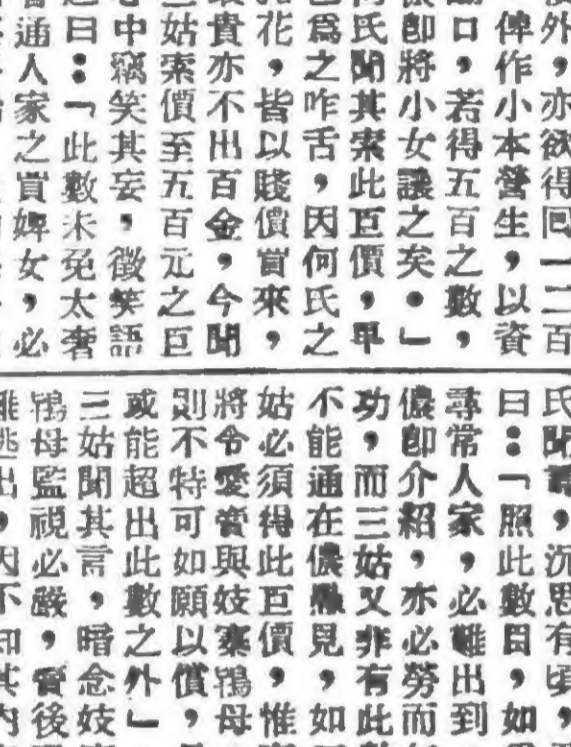 外，亦欲得回一二百
俾作小本營生，以資
口，若得五百之數，
儂卽將小女讓之矣。」
氏聞其索此巨價，早
爲之咋舌，因何氏之
花，皆以賤價買來，
貴亦不出百金，今聞
三姑索價至五百元之巨
中竊笑其妄，微笑語
曰：「此數未免太奢
通人家之買婢女，必
氏聞，沉思有頃，
曰：「照此數目，如
尋常人家，必難出到
儂卽介紹，亦必勞而
功，而三姑又非有此
不能通在儂愚見，，如
姑必須得此巨價，惟
將令愛賣與妓寨鴇母
則不特可如願以償，
或能超出此數之外」
三姑聞其言，暗念妓
鴇母監視必嚴，賣後
逃出，因不知其內